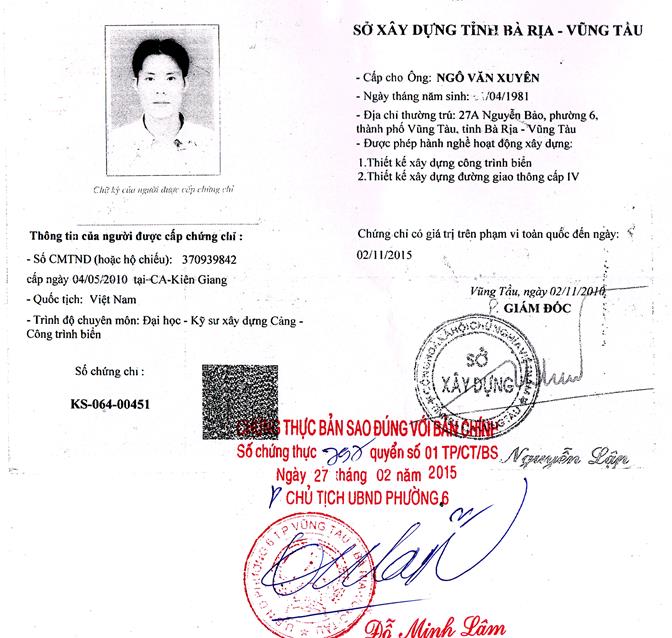 Chữ ký của người được cấp chứng chỉ
Thông tin của người được cấp chứng chỉ :
- Số CMTND (hoặc hộ chiếu): 370939842
cấp ngày 04/05/2010 tại-CA-Kiên Giang
- Quốc tịch: Việt Nam
- Trình độ chuyên môn: Đại học - Kỹ sư xây dựng Cảng -
Công trình biển
Số chứng chỉ :
KS-064-00451
SỞ XÂY DỰNG TỈNH BÀ RỊA - VŨNG TÀU
- Cấp cho Ông: NGÔ VĂN XUYÊN
- Ngày tháng năm sinh: /04/1981
- Địa chỉ thường trú: 27A Nguyễn Bảo, phường 6,
thành phố Vũng Tàu, tỉnh Bà Rịa - Vũng Tàu
- Được phép hành nghề hoạt động xây dựng:
1.Thiết kế xây dựng công trình biển
2.Thiết kế xây dựng đường giao thông cấp IV
Chứng chỉ có giá trị trên phạm vi toàn quốc đến ngày:
02/11/2015
Vũng Tầu, ngày 02/11/2010
P. GIÁM ĐỐC
SỞ
XÂY DỰNG
Nguyễn Lập
CHỨNG THỰC BẢN SAO ĐÚNG VỚI BẢN CHÍNH
Số chứng thực quyển số 01 TP/CT/BS
Ngày 27 tháng 02 năm 2015
CHỦ TỊCH UBND PHƯỜNG 6
Đỗ Minh Lâm